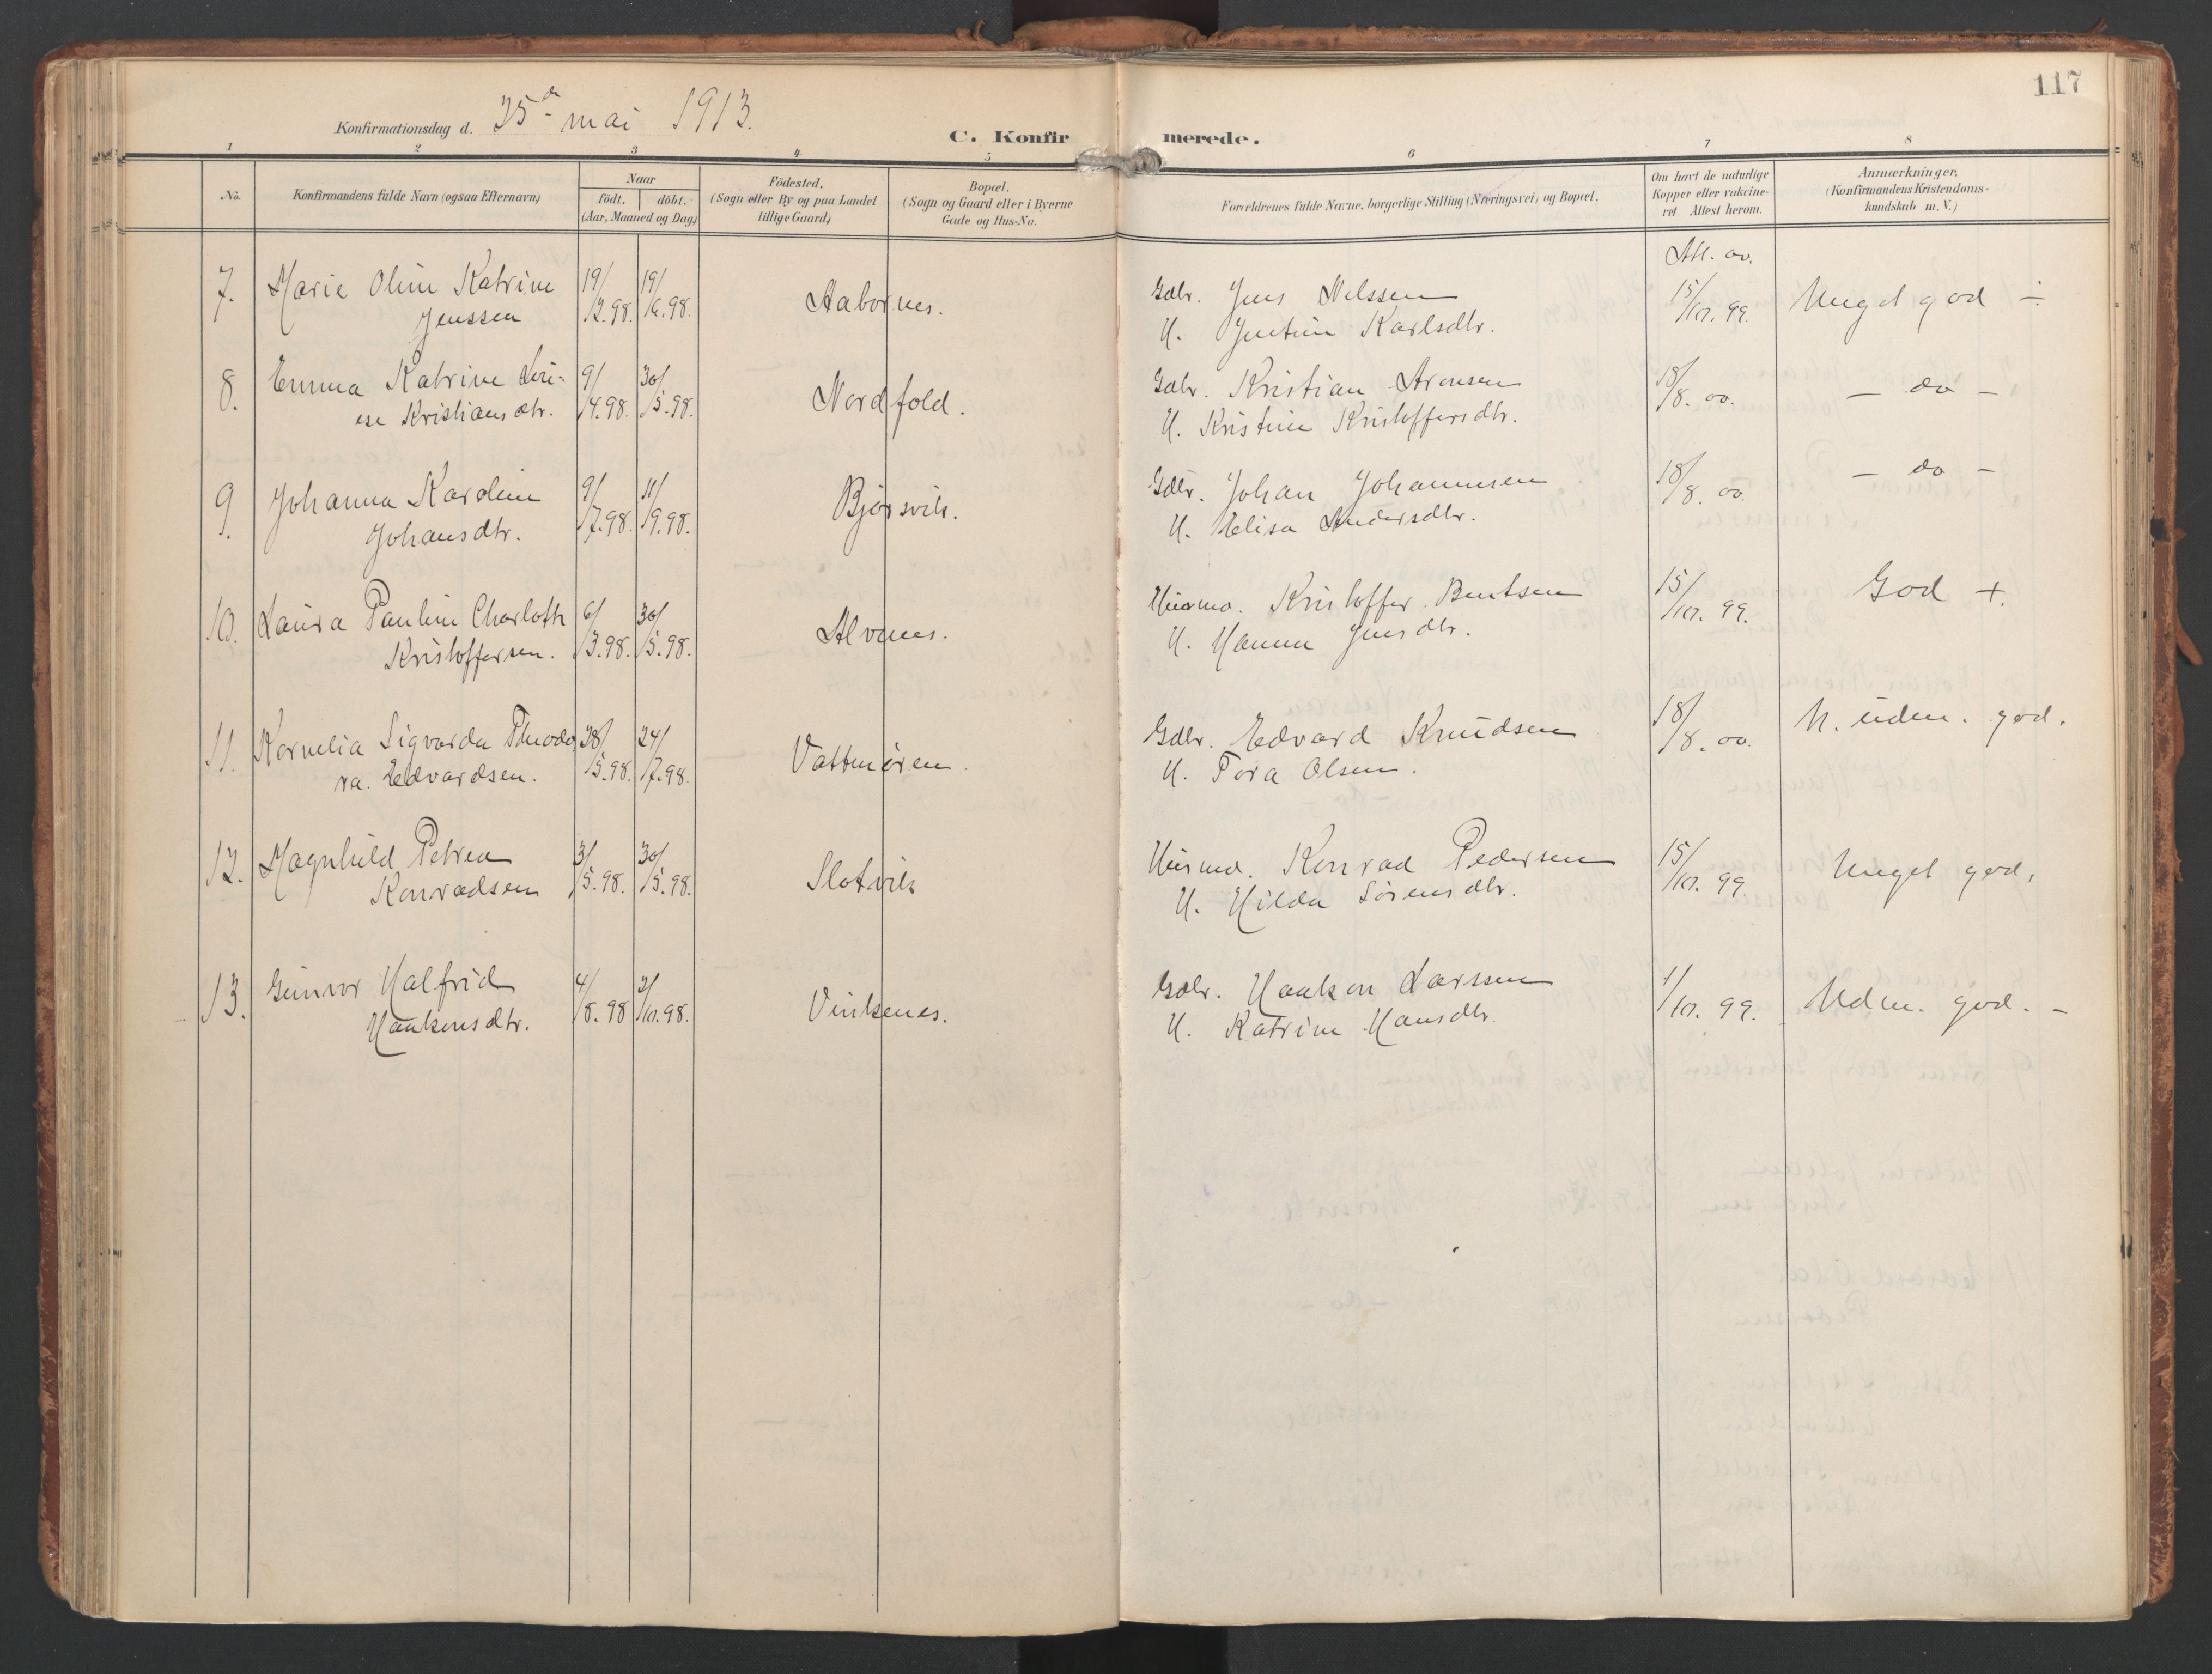 117
Konfirmationsdag d. 25de mai 1913.
C. Konfirmerede.
1 2 3 4 5 6 7 8
No.
Konfirmandens fulde Navn (ogsaa Efternavn)
Naar
födt. döbt.
(Aar, Maaned og Dag)
Födested.
(Sogn eller By og paa Landet
tillige Gaard)
Bopæl.
(Sogn og Gaard eller i Byerne
Gade og Hus-No.
Forældrenes fulde Navne, borgerlige Stilling (Næringsvei) og Bopæl.
Om havt de naturlige
Kopper eller vakcine-
ret Attest herom.
Anmærkninger.
(Konfirmandens Kristendoms-
kundskab m. V.)
Att. av.
7. Marie Oline Katrine 19/2.98. 19/6.98. Aabornes. Gdbr. Jens Nilssen 15/10. 99. Meget god ÷
Jenssen H. Jentine Karlsdtr.
8. Emma Katrine Lovi- 9/4.98. 30/5.98. Nordfold. Gdbr. Kristian Aronsen 18/8. 00. — do —
ise Kristiansdtr. H. Kristine Kristoffersdtr.
9. Johanna Karoline 9/7.98. 11/9.98. Bjørsvik. Gdbr. Johan Johannesen 18/8. 00. — do —
Johansdtr. H. Elisa Andersdtr.
10. Laura Pauline Charlotte 6/3.98. 30/5.98. Alvenes. Husmd. Kristoffer Bentsen 15/10. 99. God +.
Kristoffersen. H. Hanna Jensdtr.
11. Kornelia Sigvarda Theodo 28/5.98. 24/7.98. Vattmøren. Gdbr. Edvard Knudsen 18/8. 00. M. uden. god.
ra. Edvardsen. H. Tora Olsen.
12. Magnhild Petrea 3/5.98. 30/5.98. Slotvik Husmd. Konrad Pedersen 15/10. 99. Meget god.
Konradsen H. Hilda Sørensdtr.
13. Gunvor Halfrid 4/8.98 2/10.98. Vinkenes. Gdbr. Haakon Larssen 1/10. 99. Uden. god. -
Haakonsdtr. H. Katrine Hansdtr.